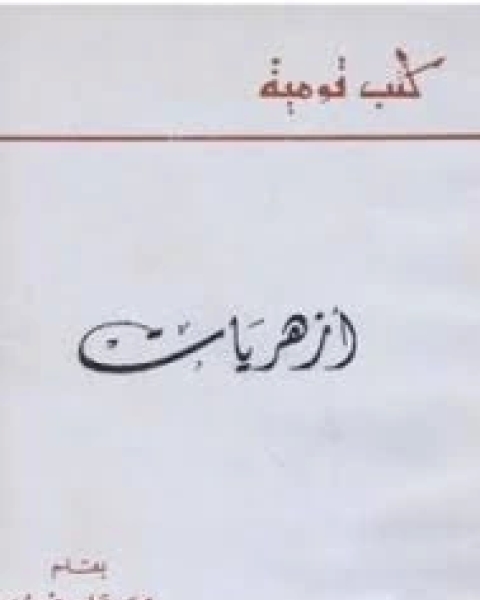 كتب قومية
أزهريات
بقلم